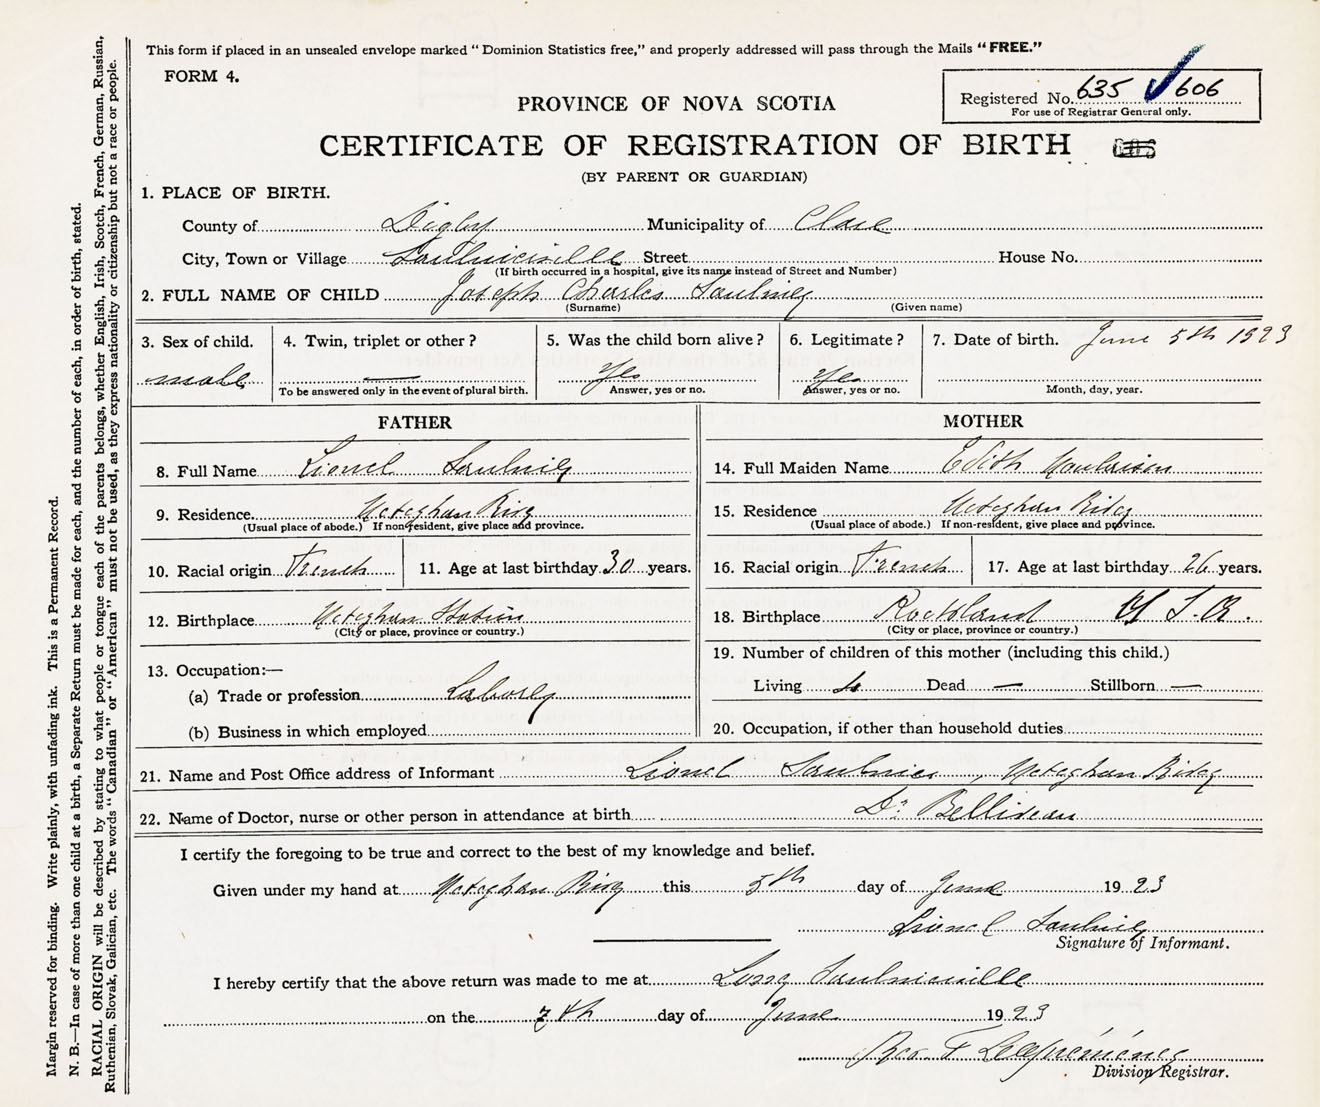 This form if placed in an unsealed envelope marked "Dominion Statistics free," and properly addressed will pass through the Mails "FREE."
FORM 4.
Registered No. 635 606
For use of Registrar General only.
PROVINCE OF NOVA SCOTIA
CERTIFICATE OF REGISTRATION OF BIRTH
(BY PARENT OR GUARDIAN)
1. PLACE OF BIRTH.
County of Digby Municipality of Clare
City, Town or Village Saulnierville Street House No.
(If birth occurred in a hospital, give its name instead of Street and Number)
2. FULL NAME OF CHILD Joseph Charles Saulnier
(Surname) (Given name)
3. Sex of child. 4. Twin, triplet or other? 5. Was the child born alive? 6. Legitimate? 7. Date of birth. June 5th 1923
male — Yes Yes
To be answered only in the event of plural birth. Answer, yes or no. Answer, yes or no. Month, day, year.
FATHER MOTHER
8. Full Name Lionel Saulnier 14. Full Maiden Name Edith
9. Residence. Meteghan River 15. Residence Meteghan River
(Usual place of abode.) If nonresident, give place and province. (Usual place of abode.) If non-resident, give place and province.
10. Racial origin French 11. Age at last birthday 30 years. 16. Racial origin French 17. Age at last birthday 26 years.
12. Birthplace Meteghan Station 18. Birthplace Rockland U S. A.
(City or place, province or country.) (City or place, province or country.)
19. Number of children of this mother (including this child.)
13. Occupation:—
Living Dead — Stillborn —
(a) Trade or profession Laborer
(b) Business in which employed 20. Occupation, if other than household duties
21. Name and Post Office address of Informant Lionel Saulnier, Meteghan River
22. Name of Doctor, nurse or other person in attendance at birth Dr Belliveau
I certify the foregoing to be true and correct to the best of my knowledge and belief.
Given under my hand at Meteghan River this 5th day of June 1923
Lionel Saulnier
Signature of Informant.
I hereby certify that the above return was made to me at Saulnierville
on the 7th day of June 1923
Division Registrar.
Margin reserved for binding. Write plainly, with unfading ink. This is a Permanent Record.
N. B.—In case of more than one child at a birth, a Separate Return must be made for each, and the number of each, in order of birth, stated.
RACIAL ORIGIN will be described by stating to what people or tongue each of the parents belongs, whether English, Irish, Scotch, French, German, Russian,
Ruthenian, Slovak, Galician, etc. The words "Canadian" or "American" must not be used, as they express nationality or citizenship but not a race or people.